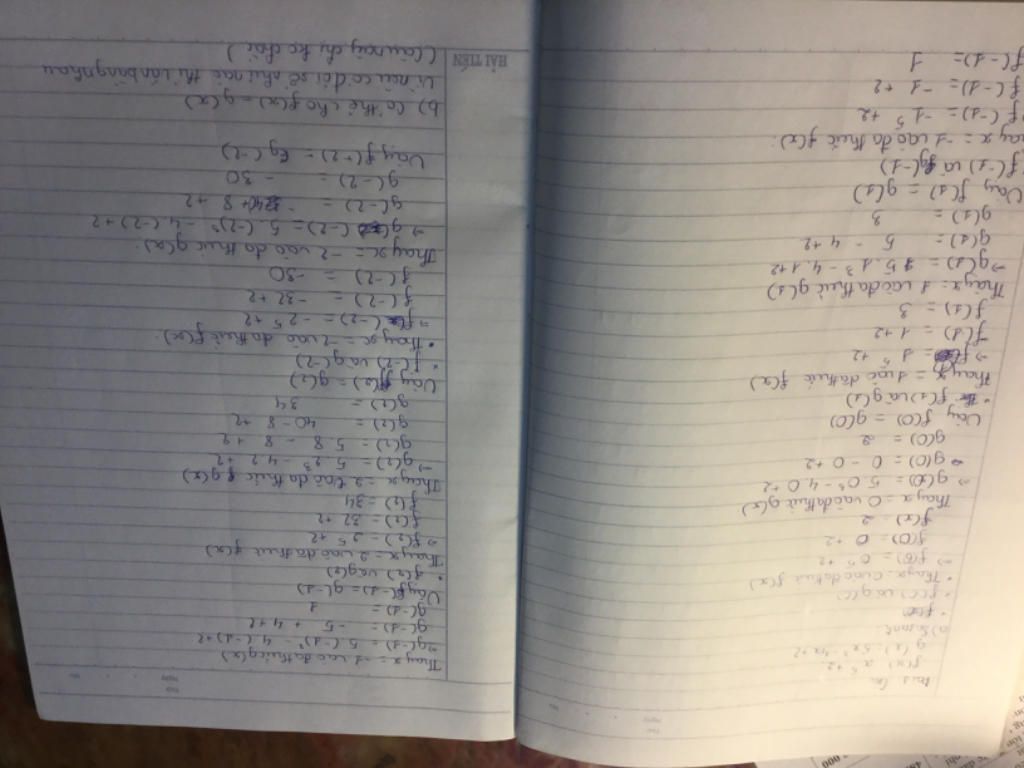 f(x) = x⁵ + 2
g(x) = 5x³ - 4x + 2
a) So sánh:
f(0) và g(0)
• Thay x = 0 vào đa thức f(x)
⇒ f(0) = 0⁵ + 2
f(0) = 0 + 2
f(x) = 2
Thay x = 0 vào đa thức g(x)
⇒ g(0) = 5.0³ - 4.0 + 2
⇒ g(0) = 0 - 0 + 2
g(0) = 2
Vậy f(0) = g(0)
• f(1) và g(1)
Thay x = 1 vào đa thức f(x)
⇒ = 1⁵ + 2
f(1) = 1 + 2
f(1) = 3
Thay x = 1 vào đa thức g(1)
⇒ g(1) = 5.1³ - 4.1+2
g(1) = 5 - 4 +2
g(1) = 3
Vậy f(1) = g(1)
f(-1) và g(-1)
Thay x = -1 vào đa thức f(x).
f(-1) = -1⁵ +2
f(-1) = -1 +2
f(-1) = 1
Thay x = -1 vào đa thức g(x)
⇒ g(-1) = 5.(-1)³ - 4.(-1)+2
g(-1) = -5 + 4 +2
g(-1) = 1
Vậy f(-1) = g(-1)
• f(2) và g(2)
Thay x = 2 vào đa thức f(x)
⇒ f(2) = 2⁵ +2
f(2) = 32 +2
f(2) = 34
Thay x = 2 vào đa thức g(x)
⇒ g(2) = 5.2³ - 4.2 +2
g(2) = 5.8 - 8 +2
g(2) = 40 - 8 +2
g(2) = 34
Vậy f(2) = g(2)
• f(-2) và g(-2)
• Thay x = -2 vào đa thức f(x).
⇒ (-2) = -2⁵ +2
f(-2) = -32 +2
f(-2) = -30
Thay x = -2 vào đa thức g(x).
⇒ g(-2) = 5.(-2)³ - 4.(-2) +2
g(-2) = + 8 +2
g(-2) = - 30
Vậy f(+2) = g(-2)
b) Có thể cho f(x) = g(x)
Vì nếu có đổi số như nào thì vẫn bằng nhau
(câu này chị ko chắc)
HẢI TIẾN